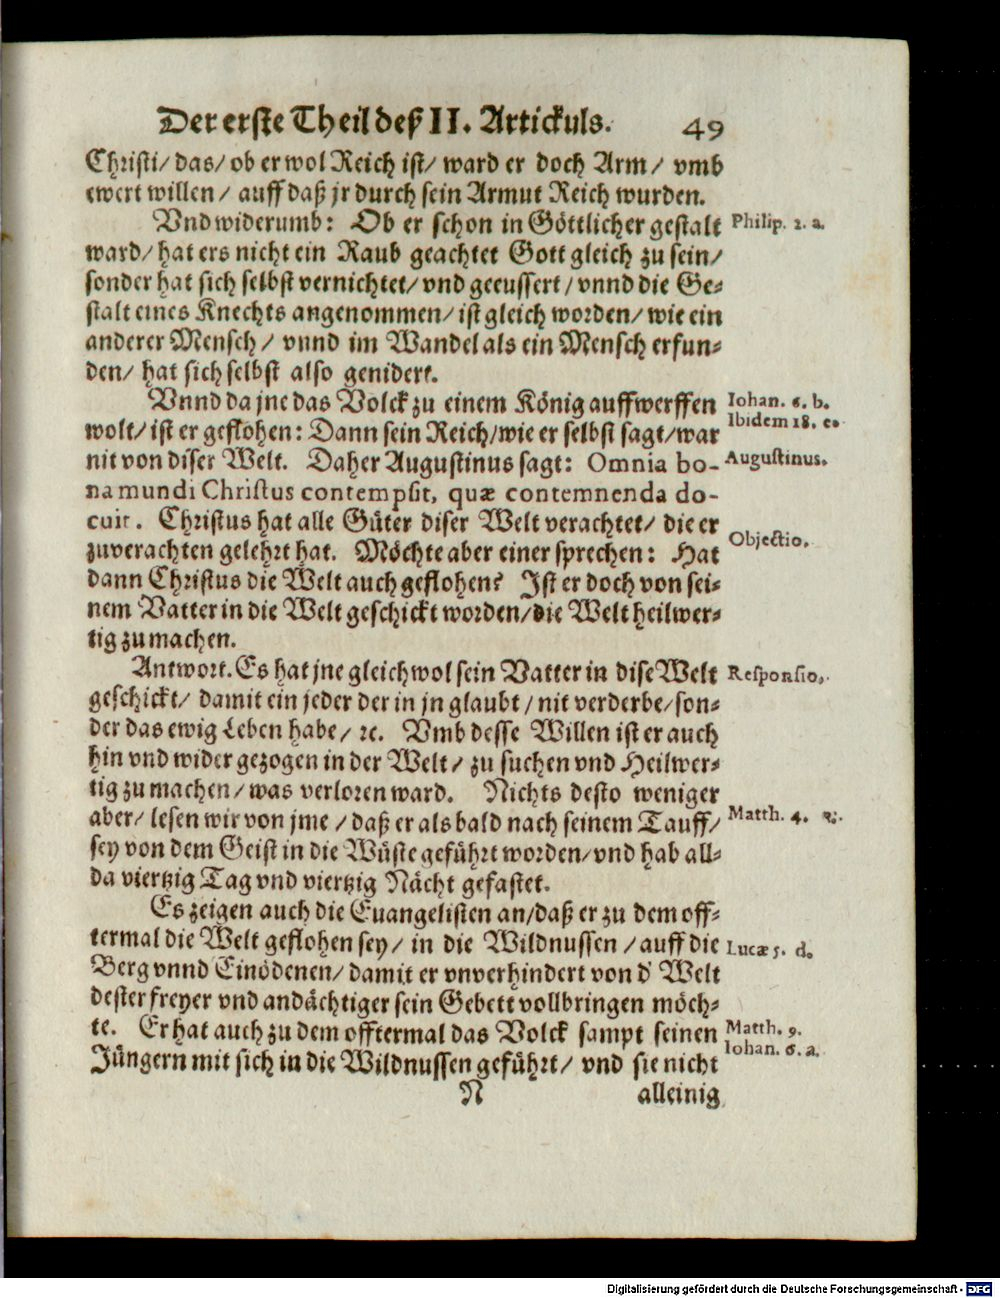 Der erste Theil deß II. Artickuls. 49
Christi/ das/ ob er wol Reich ist/ ward er doch Arm/ vmb
ewert willen/ auff daß jr durch sein Armut Reich wurden.
Vnd widerumb: Ob er schon in Göttlicher gestalt
Philip. 2. a.
ward/ hat ers nicht ein Raub geachtet Gott gleich zu sein/
sonder hat sich selbst vernichtet/ vnd geeussert/ vnnd die Ge-
stalt eines Knechts angenommen/ ist gleich worden/ wie ein
anderer Mensch/ vnnd im Wandel als ein Mensch erfun-
den/ hat sich selbst also genidert.
Vnnd da jne das Volck zu einem König auffwerffen
Iohan. 6. b.
Ibidem 18. e.
wolt/ ist er geflohen: Dann sein Reich/ wie er selbst sagt/ war
nit von diser Welt. Daher Augustinus sagt: Omnia bo-
Augustinus.
na mundi Christus contempsit, quæ contemnenda do-
cuit. Christus hat alle Güter diser Welt verachtet/ die er
Objectio.
zuverachten gelehrt hat. Möchte aber einer sprechen: Hat
dann Christus die Welt auch geflohen? Ist er doch von sei-
nem Vatter in die Welt geschickt worden/ die Welt heilwer-
tig zu machen.
Antwort. Es hat jne gleichwol sein Vatter in dise Welt
Responsio.
geschickt/ damit ein jeder der in jn glaubt/ nit verderbe/ son-
der das ewig Leben habe/ ꝛc. Vmb desse Willen ist er auch
hin vnd wider gezogen in der Welt/ zu suchen vnd Heilwer-
tig zu machen/ was verloren ward. Nichts desto weniger
aber/ lesen wir von jme/ daß er als bald nach seinem Tauff/
Matth. 4.
sey von dem Geist in die Wüste geführt worden/ vnd hab all-
da viertzig Tag vnd viertzig Nächt gefastet.
Es zeigen auch die Euangelisten an/ daß er zu dem off-
termal die Welt geflohen sey/ in die Wildnussen/ auff die
Lucæ 5. d.
Berg vnnd Einödenen/ damit er vnverhindert von d' Welt
dester freyer vnd andächtiger sein Gebett vollbringen möch-
te. Er hat auch zu dem offtermal das Volck sampt seinen
Matth. 9.
Iohan. 6. a.
Jüngern mit sich in die Wildnussen geführt/ vnd sie nicht
N alleinig
Digitalisierung gefördert durch die Deutsche Forschungsgemeinschaft - DFG